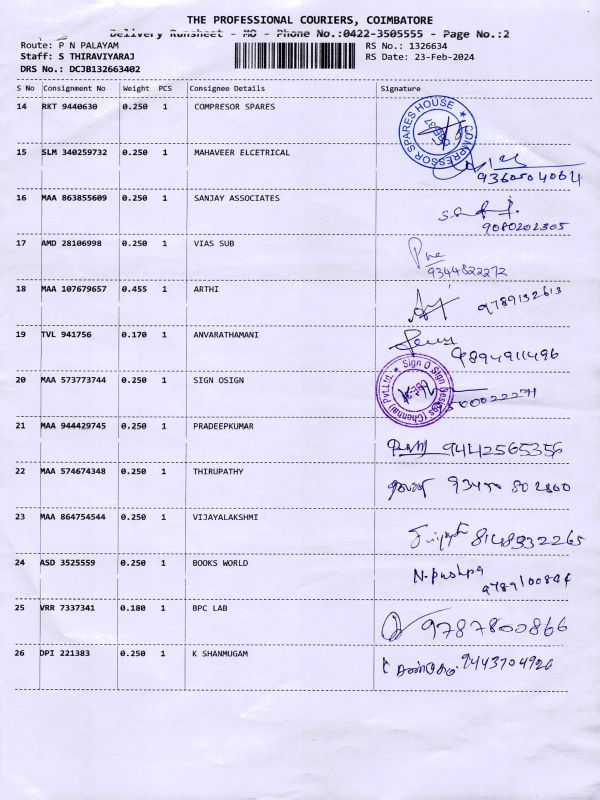 THE PROFESSIONAL COURIERS, COIMBATORE
Delivery Runsheet - MO - Phone No.:0422-3505555 - Page No.:2
Route: P N PALAYAM RS No.: 1326634
Staff: S THIRAVIYARAJ RS Date: 23-Feb-2024
DRS No.: DCJB132663402
S No Consignment No Weight PCS Consignee Details Signature
14 RKT 9440630 0.250 1 COMPRESOR SPARES
COMPRESSOR SPARES HOUSE
15 SLM 340259732 0.250 1 MAHAVEER ELCETRICAL
9360504064
16 MAA 863855609 0.250 1 SANJAY ASSOCIATES
9080202305
17 AMD 28106998 0.250 1 VIAS SUB
9344822272
18 MAA 107679657 0.455 1 ARTHI 9789132613
19 TVL 941756 0.170 1 ANVARATHAMANI
9894911496
20 MAA 573773744 0.250 1 SIGN OSIGN
Sign O Sign Designs (Chennai) Pvt.Ltd.
21 MAA 944429745 0.250 1 PRADEEPKUMAR
9442565356
22 MAA 574674348 0.250 1 THIRUPATHY
802800
23 MAA 864754544 0.250 1 VIJAYALAKSHMI
8148332265
24 ASD 3525559 0.250 1 BOOKS WORLD
N.pushpa
25 VRR 7337341 0.180 1 BPC LAB
9787800866
26 DPI 221383 0.250 1 K SHANMUGAM
9443704926